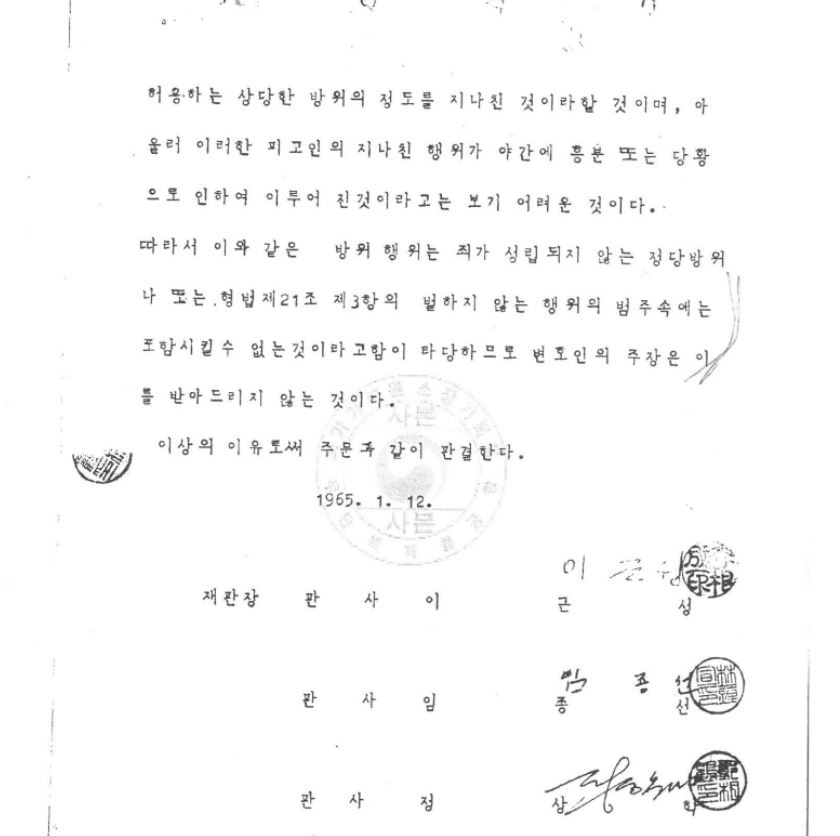 허용하는 상당한 방위의 정도를 지나친 것이라할 것이며, 아
울러 이러한 피고인의 지나친 행위가 야간에 흥분 또는 당황
으로 인하여 이루어 진것이라고는 보기 어려운 것이다.
따라서 이와 같은 방위 행위는 죄가 성립되지 않는 정당방위
나 또는 형법제21조 제3항의 벌하지 않는 행위의 범주속에는
포함시킬수 없는것이라고함이 타당하므로 변호인의 주장은 이
를 받아드리지 않는 것이다.
이상의 이유로써 주문과 같이 판결한다.
1965. 1. 12.
사본
사본
이 근 성
재판장 판 사 이 근 성
임 종 선
판 사 임 종 선
판 사 정 상